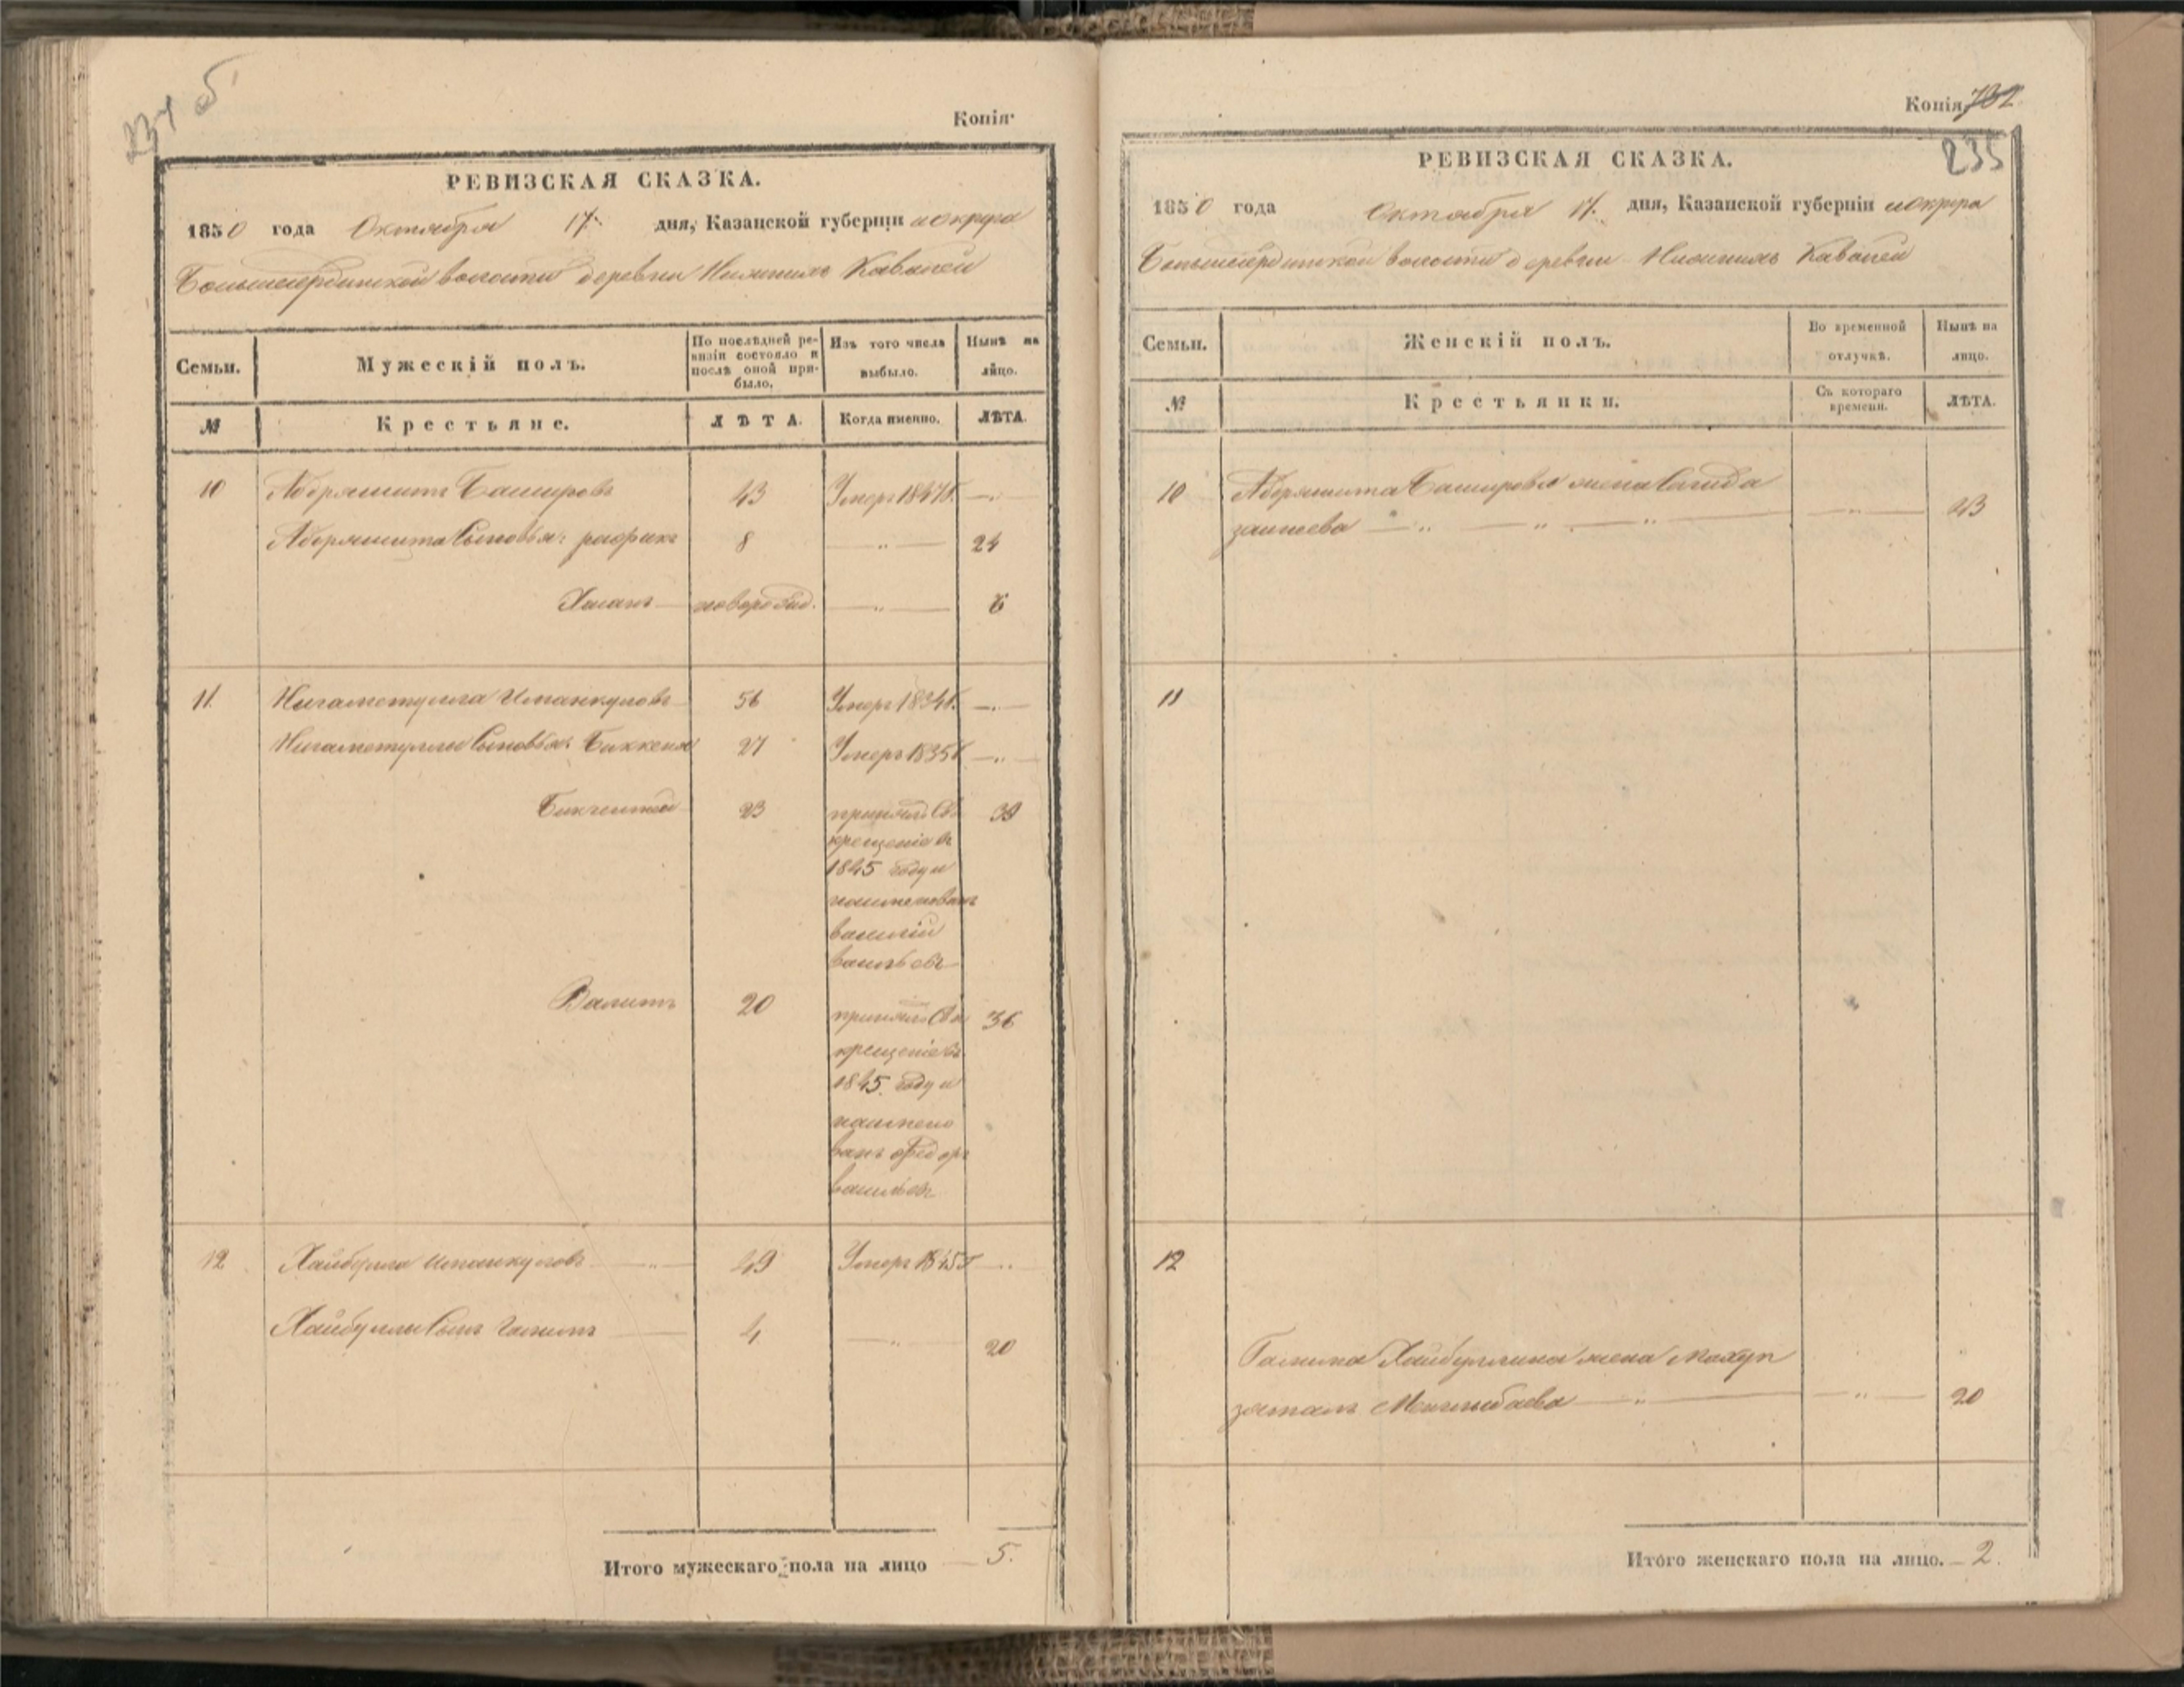 234 б
Копія
РЕВИЗСКАЯ СКАЗКА.
1850 года Октября 17. дня, Казанской губерніи и округа
волости деревни Кавалей
Семьи. Мужескій полъ. По послѣдней ревизіи состояло и послѣ оной прибыло. Изъ того числа выбыло. Нынѣ на лицо.
№ Крестьяне. ЛѢТА. Когда именно. ЛѢТА.
10 Абдряшитъ Башировъ 43 Умеръ 1847 г. —
Абдряшита Сыновья: рафикъ 8 — " — 24
Хасанъ новорожд. — " — 6
11. Нигаметулла Иманкуловъ 56 Умеръ 1834 г. —
Нигаметуллы Сыновья: Биккеня 27 Умеръ 1835 г —
Бикчентей 23 принялъ Св. 39
крещеніе въ
1845 году и
наименованъ
василій
васильевъ
Валитъ 20 принялъ Св. 36
крещеніе въ
1845 году и
наимено
ванъ Федоръ
васильевъ
12. Хайбулла Иманкуловъ — " — 49 Умеръ 1845 г —
Хайбуллы Сынъ Галимъ 4 — " — 20
Итого мужескаго пола на лицо — 5.
Копія 732
235
РЕВИЗСКАЯ СКАЗКА.
1850 года Октября 17. дня, Казанской губерніи и округа
волости деревни Кавалей
Семьи. Женскій полъ. Во временной отлучкѣ. Нынѣ на лицо.
№ Крестьянки. Съ котораго времени. ЛѢТА.
10 Абдряшита Баширова жена Сагида
— " — " — " — " — 23
11
12
Галима Хайбуллина жена Махуп
зяманъ — " — " — 20
Итого женскаго пола на лицо. — 2.